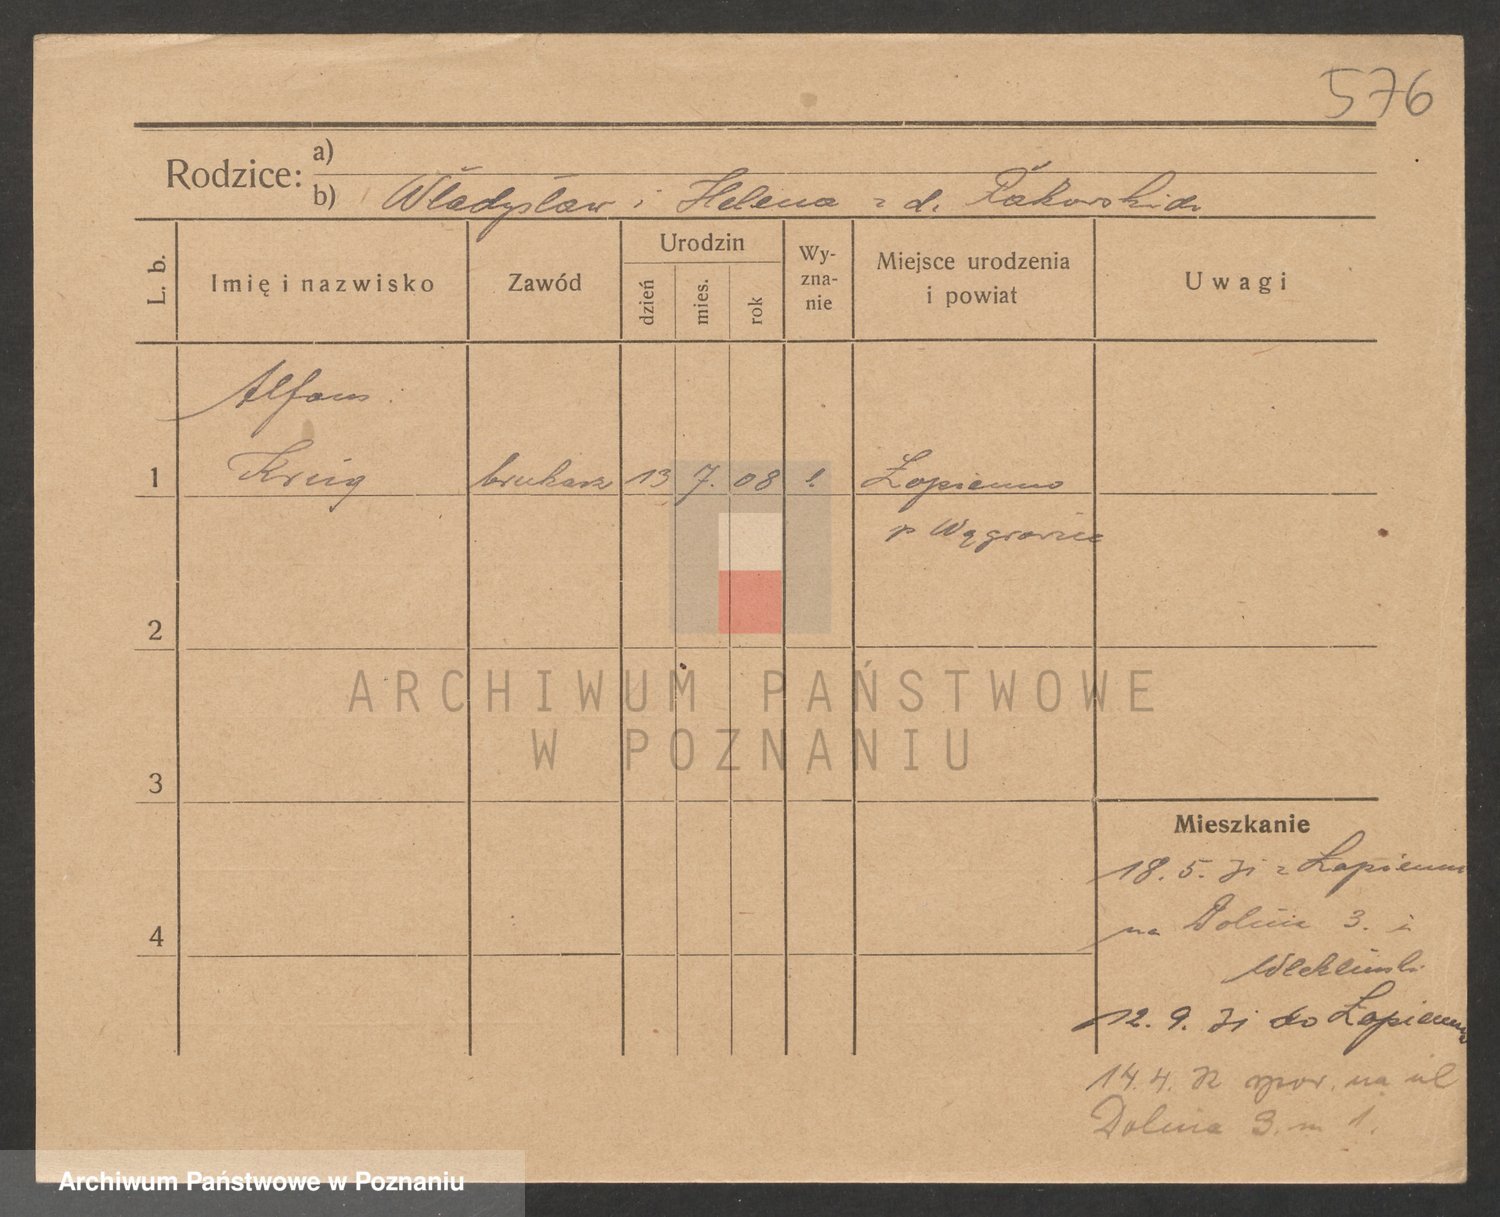 576
Rodzice: a)
b) Władysław i Helena z d.
L. b.
Imię i nazwisko
Zawód
Urodzin
dzień
mies.
rok
Wy-
zna-
nie
Miejsce urodzenia
i powiat
Uwagi
Alfons
1 Krüg brukarz 13 7. 08 Łopienno
p Wągrowiec
2
ARCHIWUM PAŃSTWOWE
W POZNANIU
3
Mieszkanie
18. 5. 31 z Łopienna
na Dolina 3. i
4
12. 9. 31 do Łopienna
14. 4. 32 na ul
Dolina 3. m 1.
Archiwum Państwowe w Poznaniu